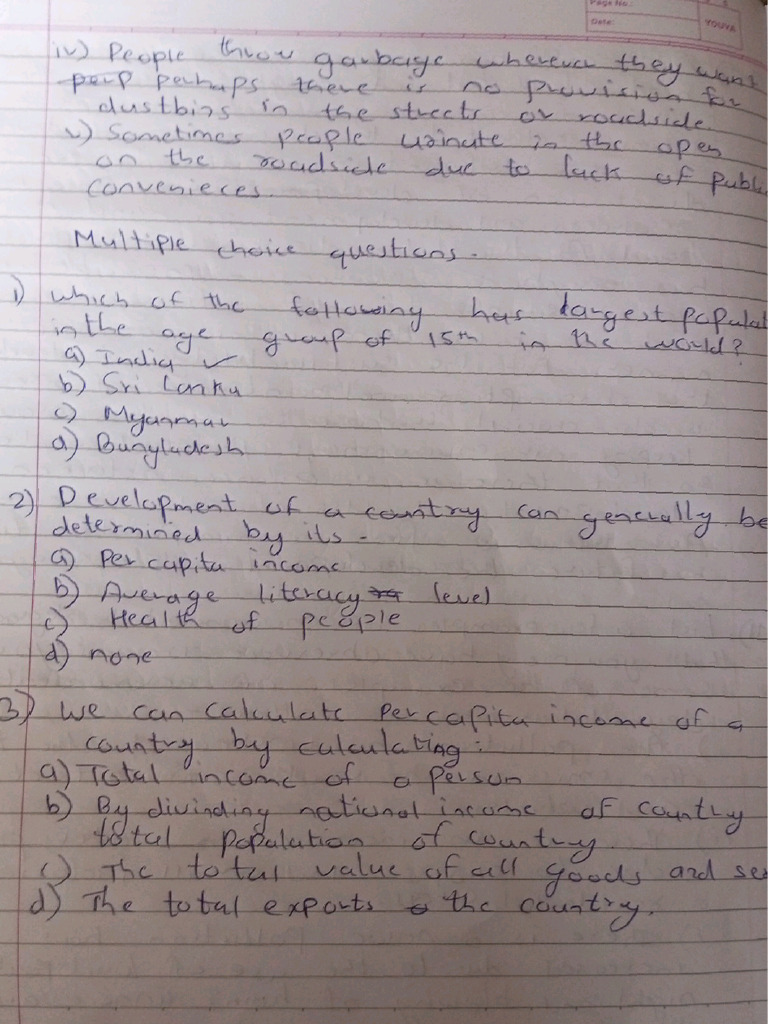 Page No.:
Date:
YOUVA
iv) People throw garbage wherever they want
perp perhaps there is no provision for
dustbins in the streets or roadside
v) Sometimes people urinate in the open
on the roadside due to lack of publi
convenieces.
Multiple choice questions.
1) Which of the following has largest populat
in the age group of 15th in the world?
a) India ✓
b) Sri Lanka
c) Myanmar
d) Bangladesh
2) Development of a country can generally be
determined by its -
a) Per capita income
b) Average literacy level
c) Health of people
d) none
3) We can calculate Per capita income of a
country by calculating:
a) Total income of a person
b) By divinding national income of country
total population of country.
c) The total value of all goods and se
d) The total exports the country.